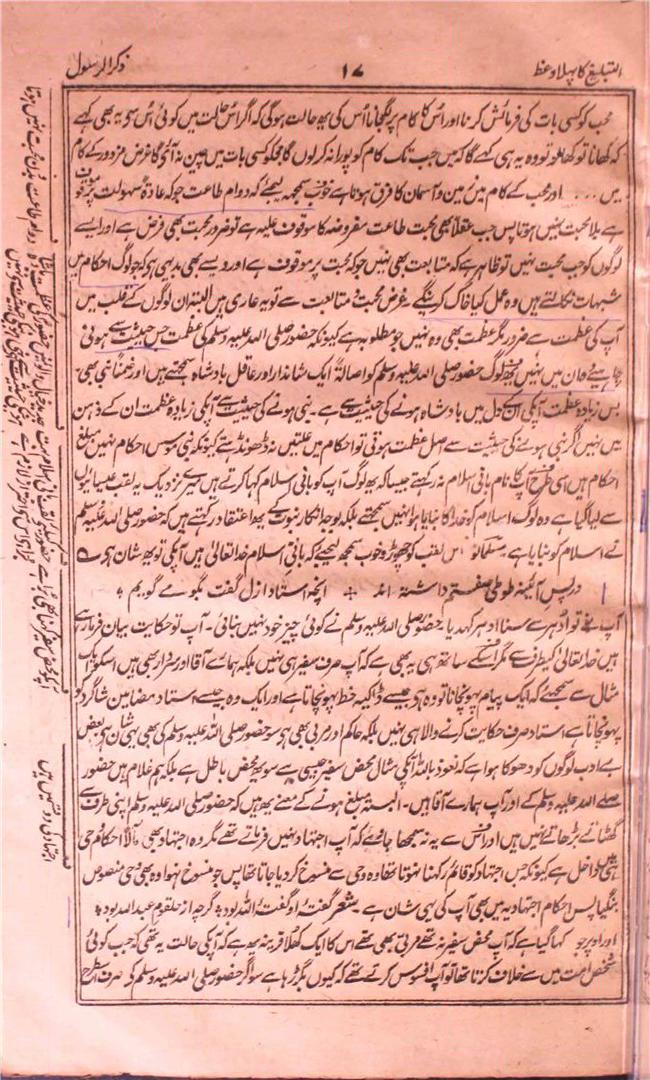 التبلیغ کا پہلا وعظ ۱۷ ذکر الرسول
محب کو کسی بات کی فرمائش کرنا اور اُس کا کام پر لگجانا اُس کی یہ حالت ہوگی کہ اگر اس حالت میں کوئی اُس سے یہ بھی کہے
کہ کھانا تو کھالو تو وہ یہی کہے گا کہ میں جب تک کام کو پورا نہ کرلوں گا مجھکو کسی بات میں چین نہ آئیگا غرض مزدور کے کام
میں .... اور محب کے کام میں زمین و آسمان کا فرق ہوتا ہے خوب سمجھ لیجئے کہ دوام طاعت جو کہ عادۃً سہولت پر موقوف
ہے بلا محبت نہیں ہوتا پس جب عقلاً بھی محبت طاعت مفروضہ کا موقوف علیہ ہے تو ضرور محبت بھی فرض ہے اور ایسے
لوگوں کو جب محبت نہیں تو ظاہر ہے کہ متابعت بھی نہیں جو کہ محبت پر موقوف ہے اور ویسے بھی بدیہی ہے کہ جو لوگ احکام میں
شبہات نکالتے ہیں وہ عمل کیا خاک کرینگے غرض محبت و متابعت سے تو یہ عاری ہیں البتہ ان لوگوں کے قلب میں
آپ کی عظمت ہے ضرور مگر عظمت بھی وہ نہیں جو مطلوب ہے کیونکہ حضور صلی اللہ علیہ وسلم کی عظمت جس حیثیت سے ہونی
چاہیئے وہ ان میں نہیں یہ لوگ حضور صلی اللہ علیہ وسلم کو اصالۃً ایک شاندار اور عاقل بادشاہ سمجھتے ہیں اور ضمناً نبی بھی۔
بس زیادہ عظمت آپکی ان کے دل میں بادشاہ ہونے کی حیثیت سے ہے۔ نبی ہونے کی حیثیت سے آپکی زیادہ عظمت ان کے ذہن
میں نہیں اگر نبی ہونے کی حیثیت سے اصل عظمت ہوتی تو احکام میں علتیں نہ ڈھونڈتے کیونکہ نبی موسس احکام نہیں مبلغ
احکام ہیں اسی طرح آپ کا نام بانی اسلام نہ رکھتے جیسا کہ یہ لوگ آپ کو بانی اسلام کہا کرتے ہیں میرے نزدیک یہ لقب عیسائیوں
سے لیا گیا ہے وہ لوگ اسلام کو خدا کا بنایا ہوا نہیں سمجھتے بلکہ بوجہ انکار نبوت کے یہ اعتقاد رکھتے ہیں کہ حضور صلی اللہ علیہ وسلم
نے اسلام کو بنایا ہے مسلمانو اس لقب کو چھوڑو خوب سمجھ لیجئے کہ بانی اسلام خدا تعالیٰ ہیں آپکی تو یہ شان ہے ؎
در پس آئینہ طوطی صفتم داشتہ اند ٭ انچہ استاد ازل گفت بگو مے گویم ٭
آپ نے تو اُدھر سے سنا ادھر کہدیا۔ حضور صلی اللہ علیہ وسلم نے کوئی چیز خود نہیں بنائی۔ آپ تو حکایت بیان فرما رہے
ہیں خدا تعالیٰ کیطرف سے مگر اسکے ساتھ ہی یہ بھی ہے کہ آپ صرف سفیر ہی نہیں بلکہ ہمارے آقا اور سردار بھی ہیں اسکو ایک
مثال سے سمجھئے کہ ایک پیام پہونچانا تو وہ ہے جیسے ڈاکیہ خط پہونچاتا ہے اور ایک وہ جیسے استاد مضامین شاگرد کو
پہونچاتا ہے استاد صرف حکایت کرنے والا ہی نہیں بلکہ حاکم اور مربی بھی ہے سو حضور صلی اللہ علیہ وسلم کی بھی یہی شان ہے بعض
بے ادب لوگوں کو دھوکا ہوا ہے کہ نعوذ باللہ آپکی مثال محض سفیر جیسی ہے سو یہ محض باطل ہے بلکہ ہم غلام ہیں حضور
صلے اللہ علیہ وسلم کے اور آپ ہمارے آقا ہیں۔ البتہ مبلغ ہونے کے معنے یہ ہیں کہ حضور صلی اللہ علیہ وسلم اپنی طرف سے
گھٹاتے بڑھاتے نہیں ہیں اور اس سے یہ نہ سمجھا جائے کہ آپ اجتہاد نہیں فرماتے تھے مگر وہ اجتہاد بھی مآلاً احکام وحی
میں داخل ہے کیونکہ جس اجتہاد کو قائم رکھنا نہوتا تھا وہ وحی سے منسوخ کردیا جاتا تھا پس جو منسوخ نہوا وہ بھی وحی منصوص
بنگیا پس احکام اجتہادیہ میں بھی آپ کی یہی شان ہے۔ شعر گفتۂ او گفتۂ اللہ بود ٭ گرچہ از حلقوم عبد اللہ بود ٭
اور اوپر جو کہا گیا ہے کہ آپ محض سفیر نہ تھے مربی بھی تھے اس کا ایک کھلا قرینہ یہ ہے کہ آپکی حالت یہ تھی کہ جب کوئی
شخص امت میں سے خلاف کرتا تھا تو آپ افسوس کرتے تھے کہ کیوں بگڑ رہا ہے سو اگر حضور صلی اللہ علیہ وسلم کو صرف اسطرح
دوام طاعت بدون محبت نہیں ہوتا
اجتہاد کی دو قسمیں ہیں